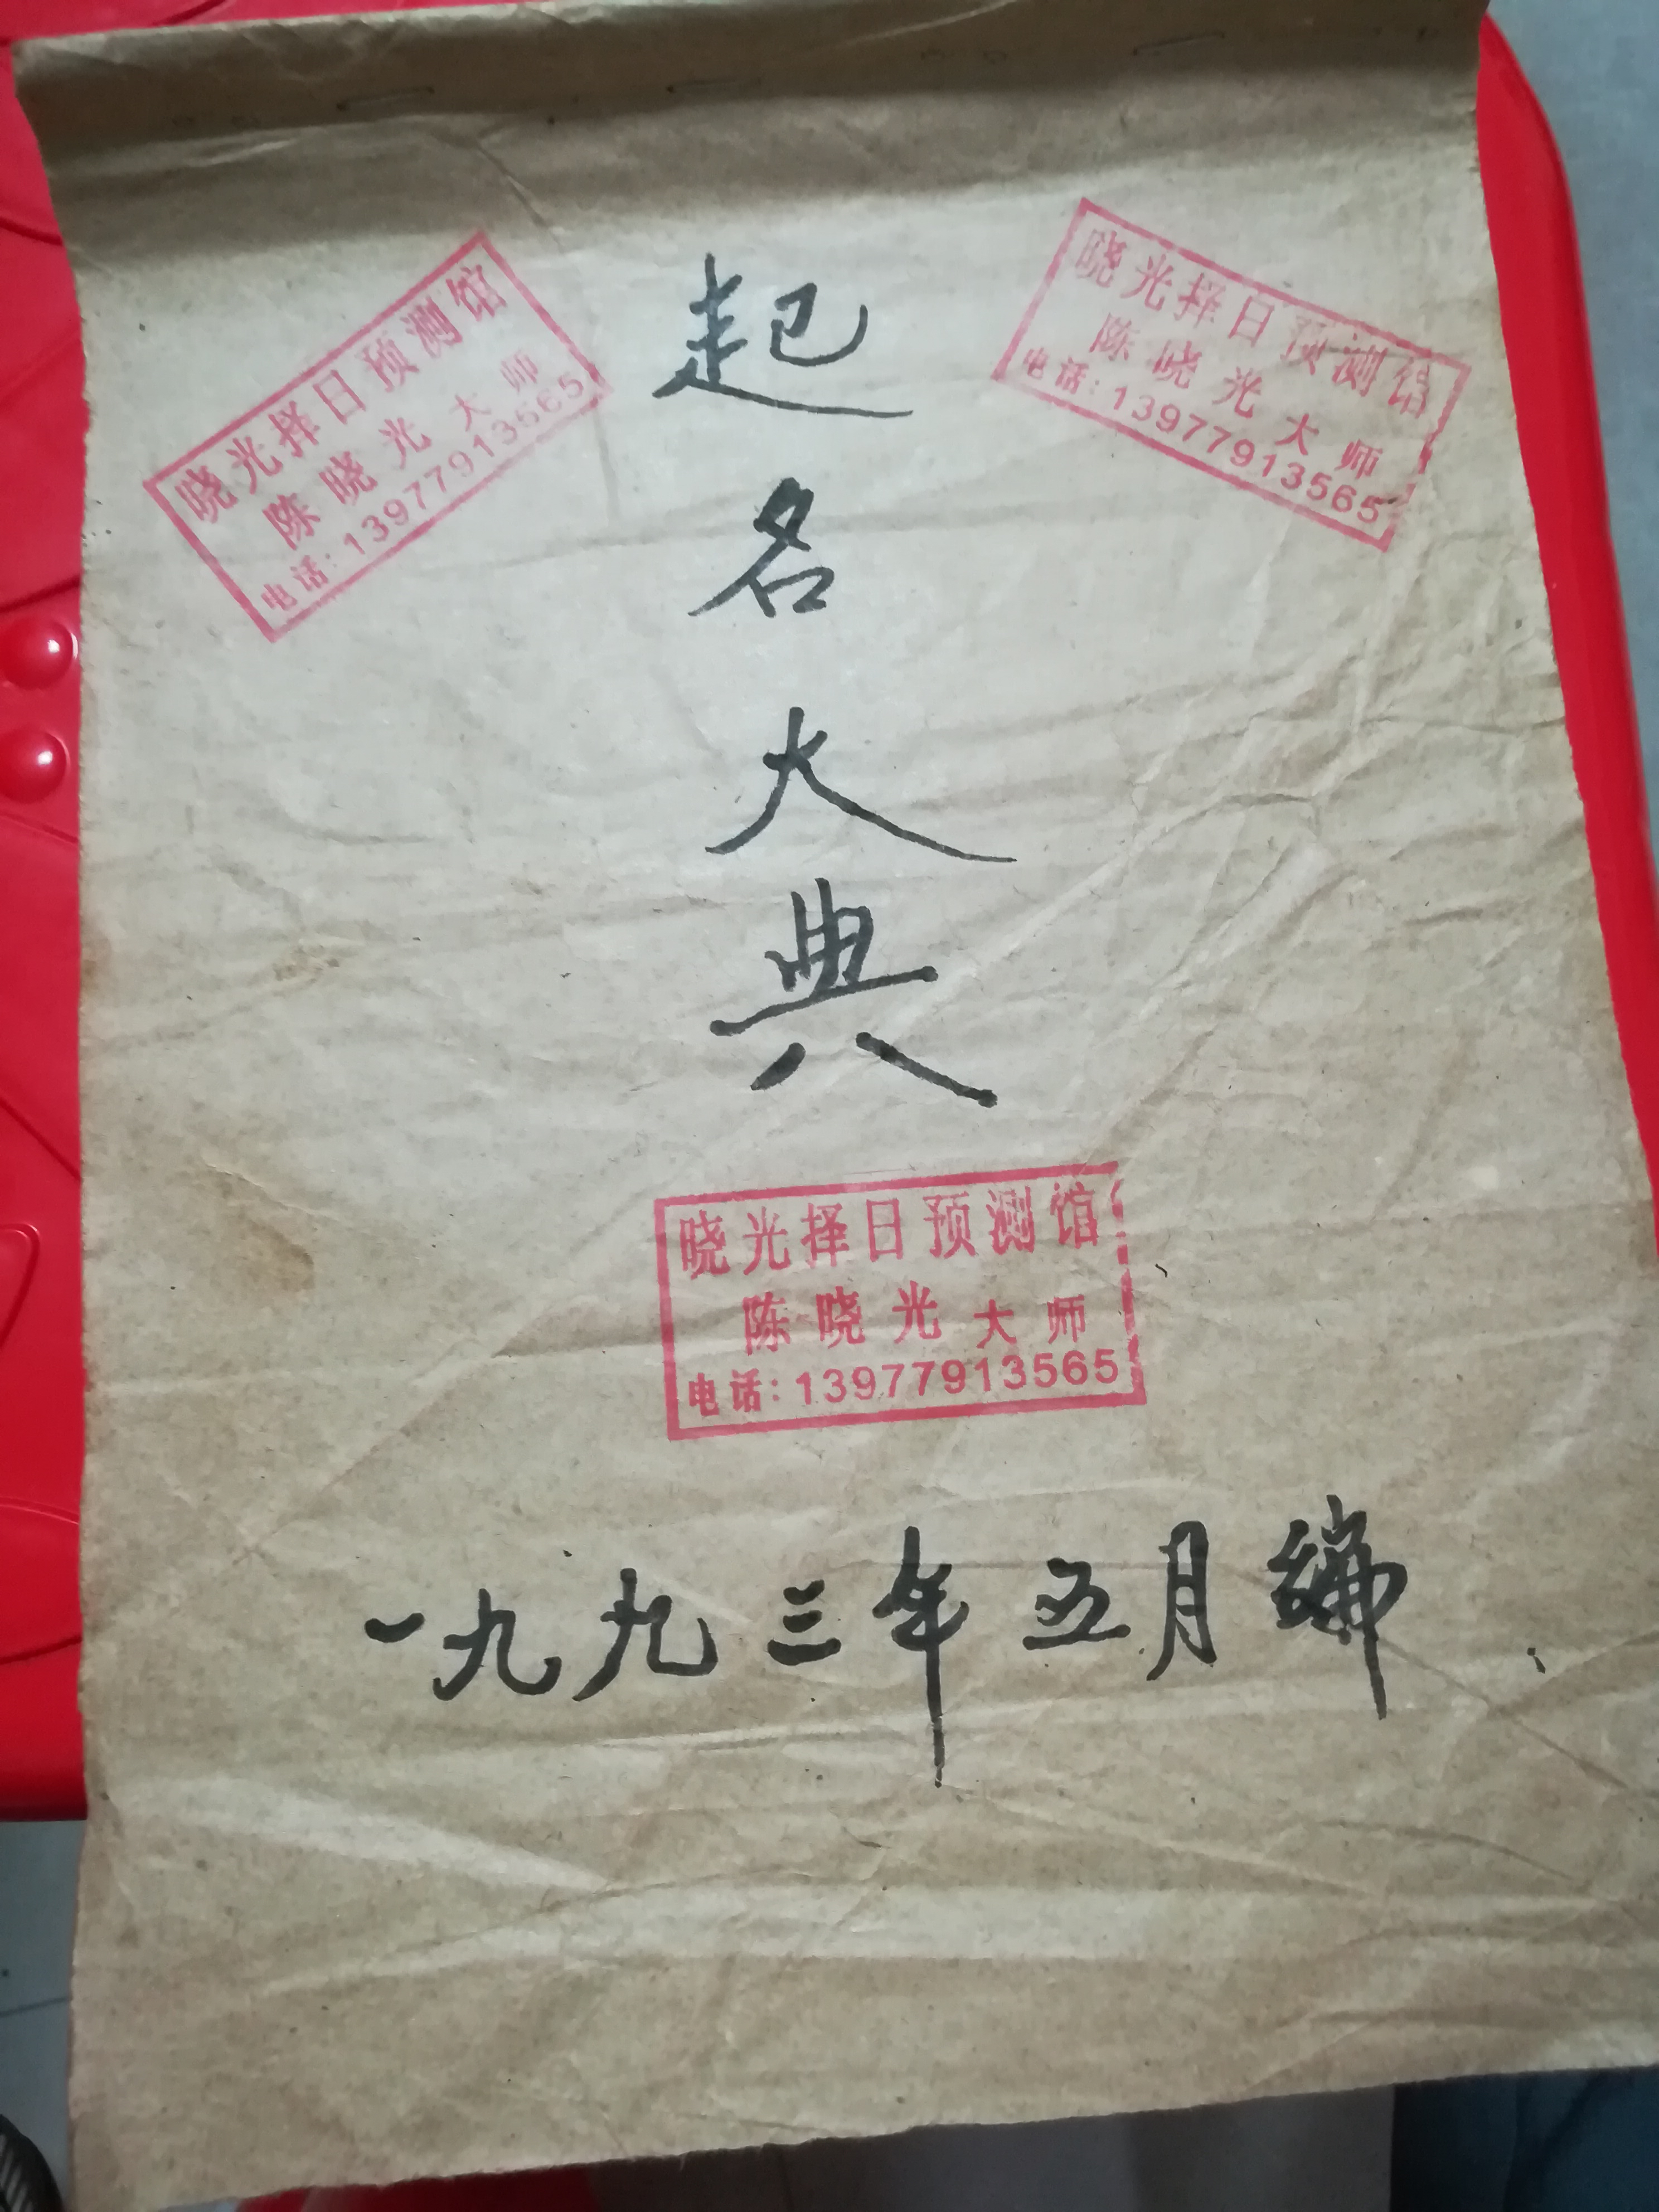 晓光择日预测馆
陈晓光大师
电话:13977913565
晓光择日预测馆
陈晓光大师
电话:13977913565
起
名
大
典
晓光择日预测馆
陈晓光大师
电话:13977913565
一九九三年五月编